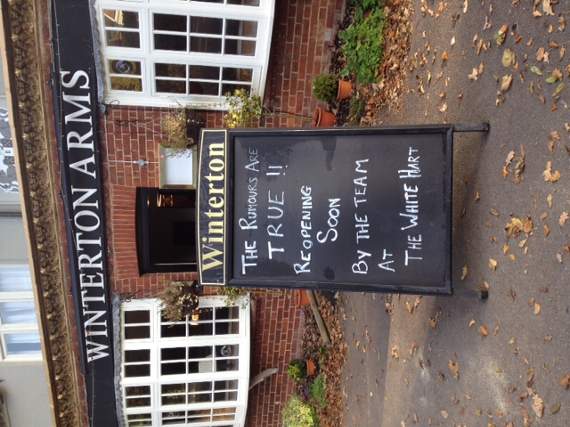 WINTERTON ARMS
Winterton
THE RUMOURS ARE
TRUE !!
REOPENING
SOON
BY THE TEAM
AT
THE WHITE HART